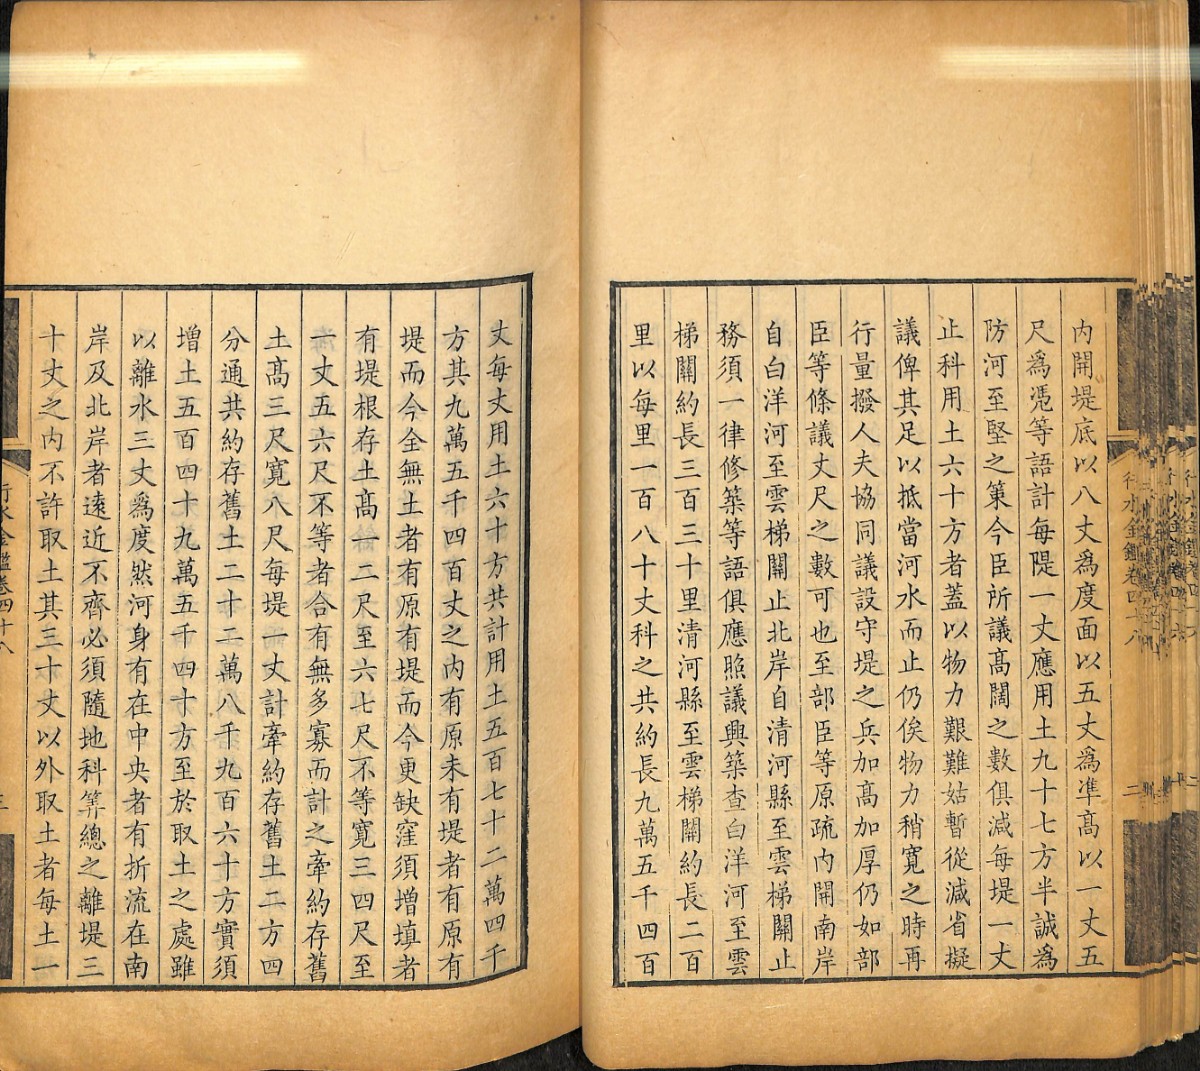 內開堤底以八丈爲度面以五丈爲準高以一丈五
尺爲凴等語計每隄一丈應用土九十七方半誠爲
防河至堅之策今臣所議高闊之數俱減每堤一丈
止科用土六十方者蓋以物力艱難姑暫從減省擬
議俾其足以抵當河水而止仍俟物力稍寬之時再
行量撥人夫協同議設守堤之兵加高加厚仍如部
臣等條議丈尺之數可也至部臣等原疏內開南岸
自白洋河至雲梯關止北岸自清河縣至雲梯關止
務須一律修築等語俱應照議興築查白洋河至雲
梯關約長三百三十里清河縣至雲梯關約長二百
里以每里一百八十丈科之共約長九萬五千四百
行水金鑑卷四十八
二
丈每丈用土六十方共計用土五百七十二萬四千
方其九萬五千四百丈之內有原未有堤者有原有
堤而今全無土者有原有堤而今更缺窪須增填者
有堤根存土高一二尺至六七尺不等寬三四尺至
一丈五六尺不等者合有無多寡而計之牽約存舊
土高三尺寬八尺每堤一丈計牽約存舊土二方四
分通共約存舊土二十二萬八千九百六十方實須
增土五百四十九萬五千四十方至於取土之處雖
以離水三丈爲度然河身有在中央者有折流在南
岸及北岸者遠近不齊必須隨地科筭總之離堤三
十丈之內不許取土其三十丈以外取土者每土一
行水金鑑卷四十八
三